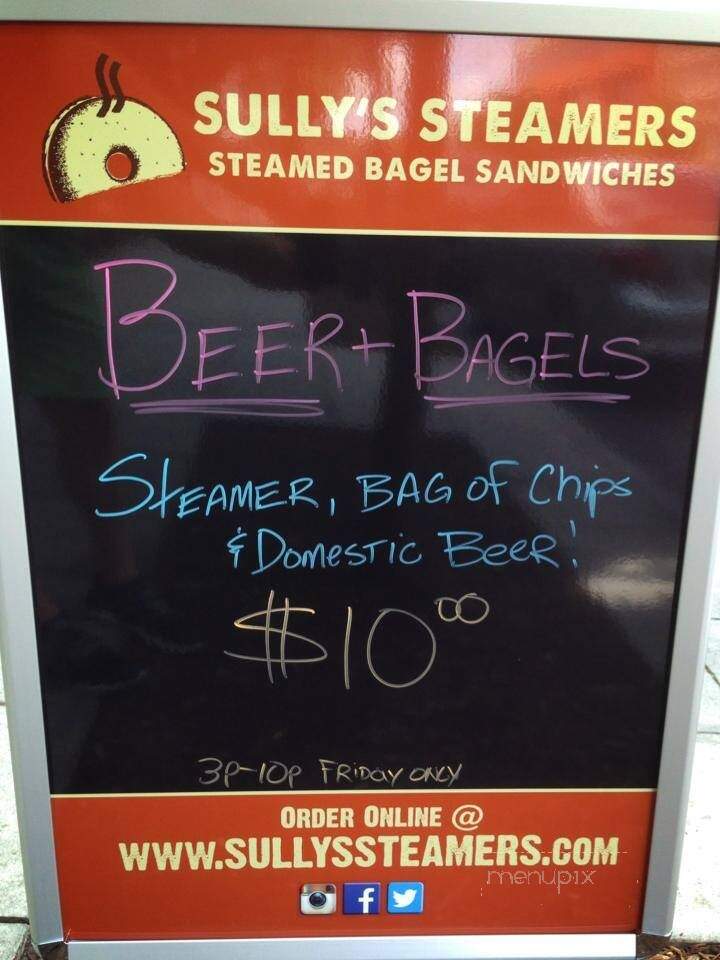 SULLY'S STEAMERS
STEAMED BAGEL SANDWICHES
BEER + BAGELS
STEAMER, BAG OF Chips
& DOMESTIC BEER!
$10 00
3P-10P FRIDAY ONLY
ORDER ONLINE @
WWW.SULLYSSTEAMERS.COM
menupix
f